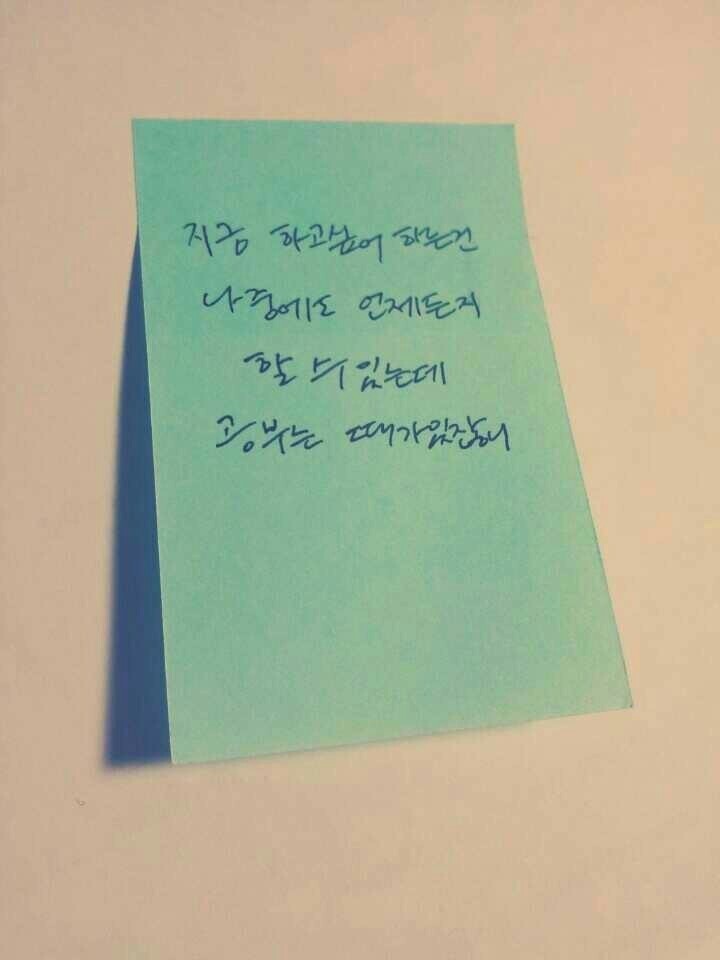 지금 하고싶어 하는건
나중에도 언제든지
할 수 있는데
공부는 때가있잖니